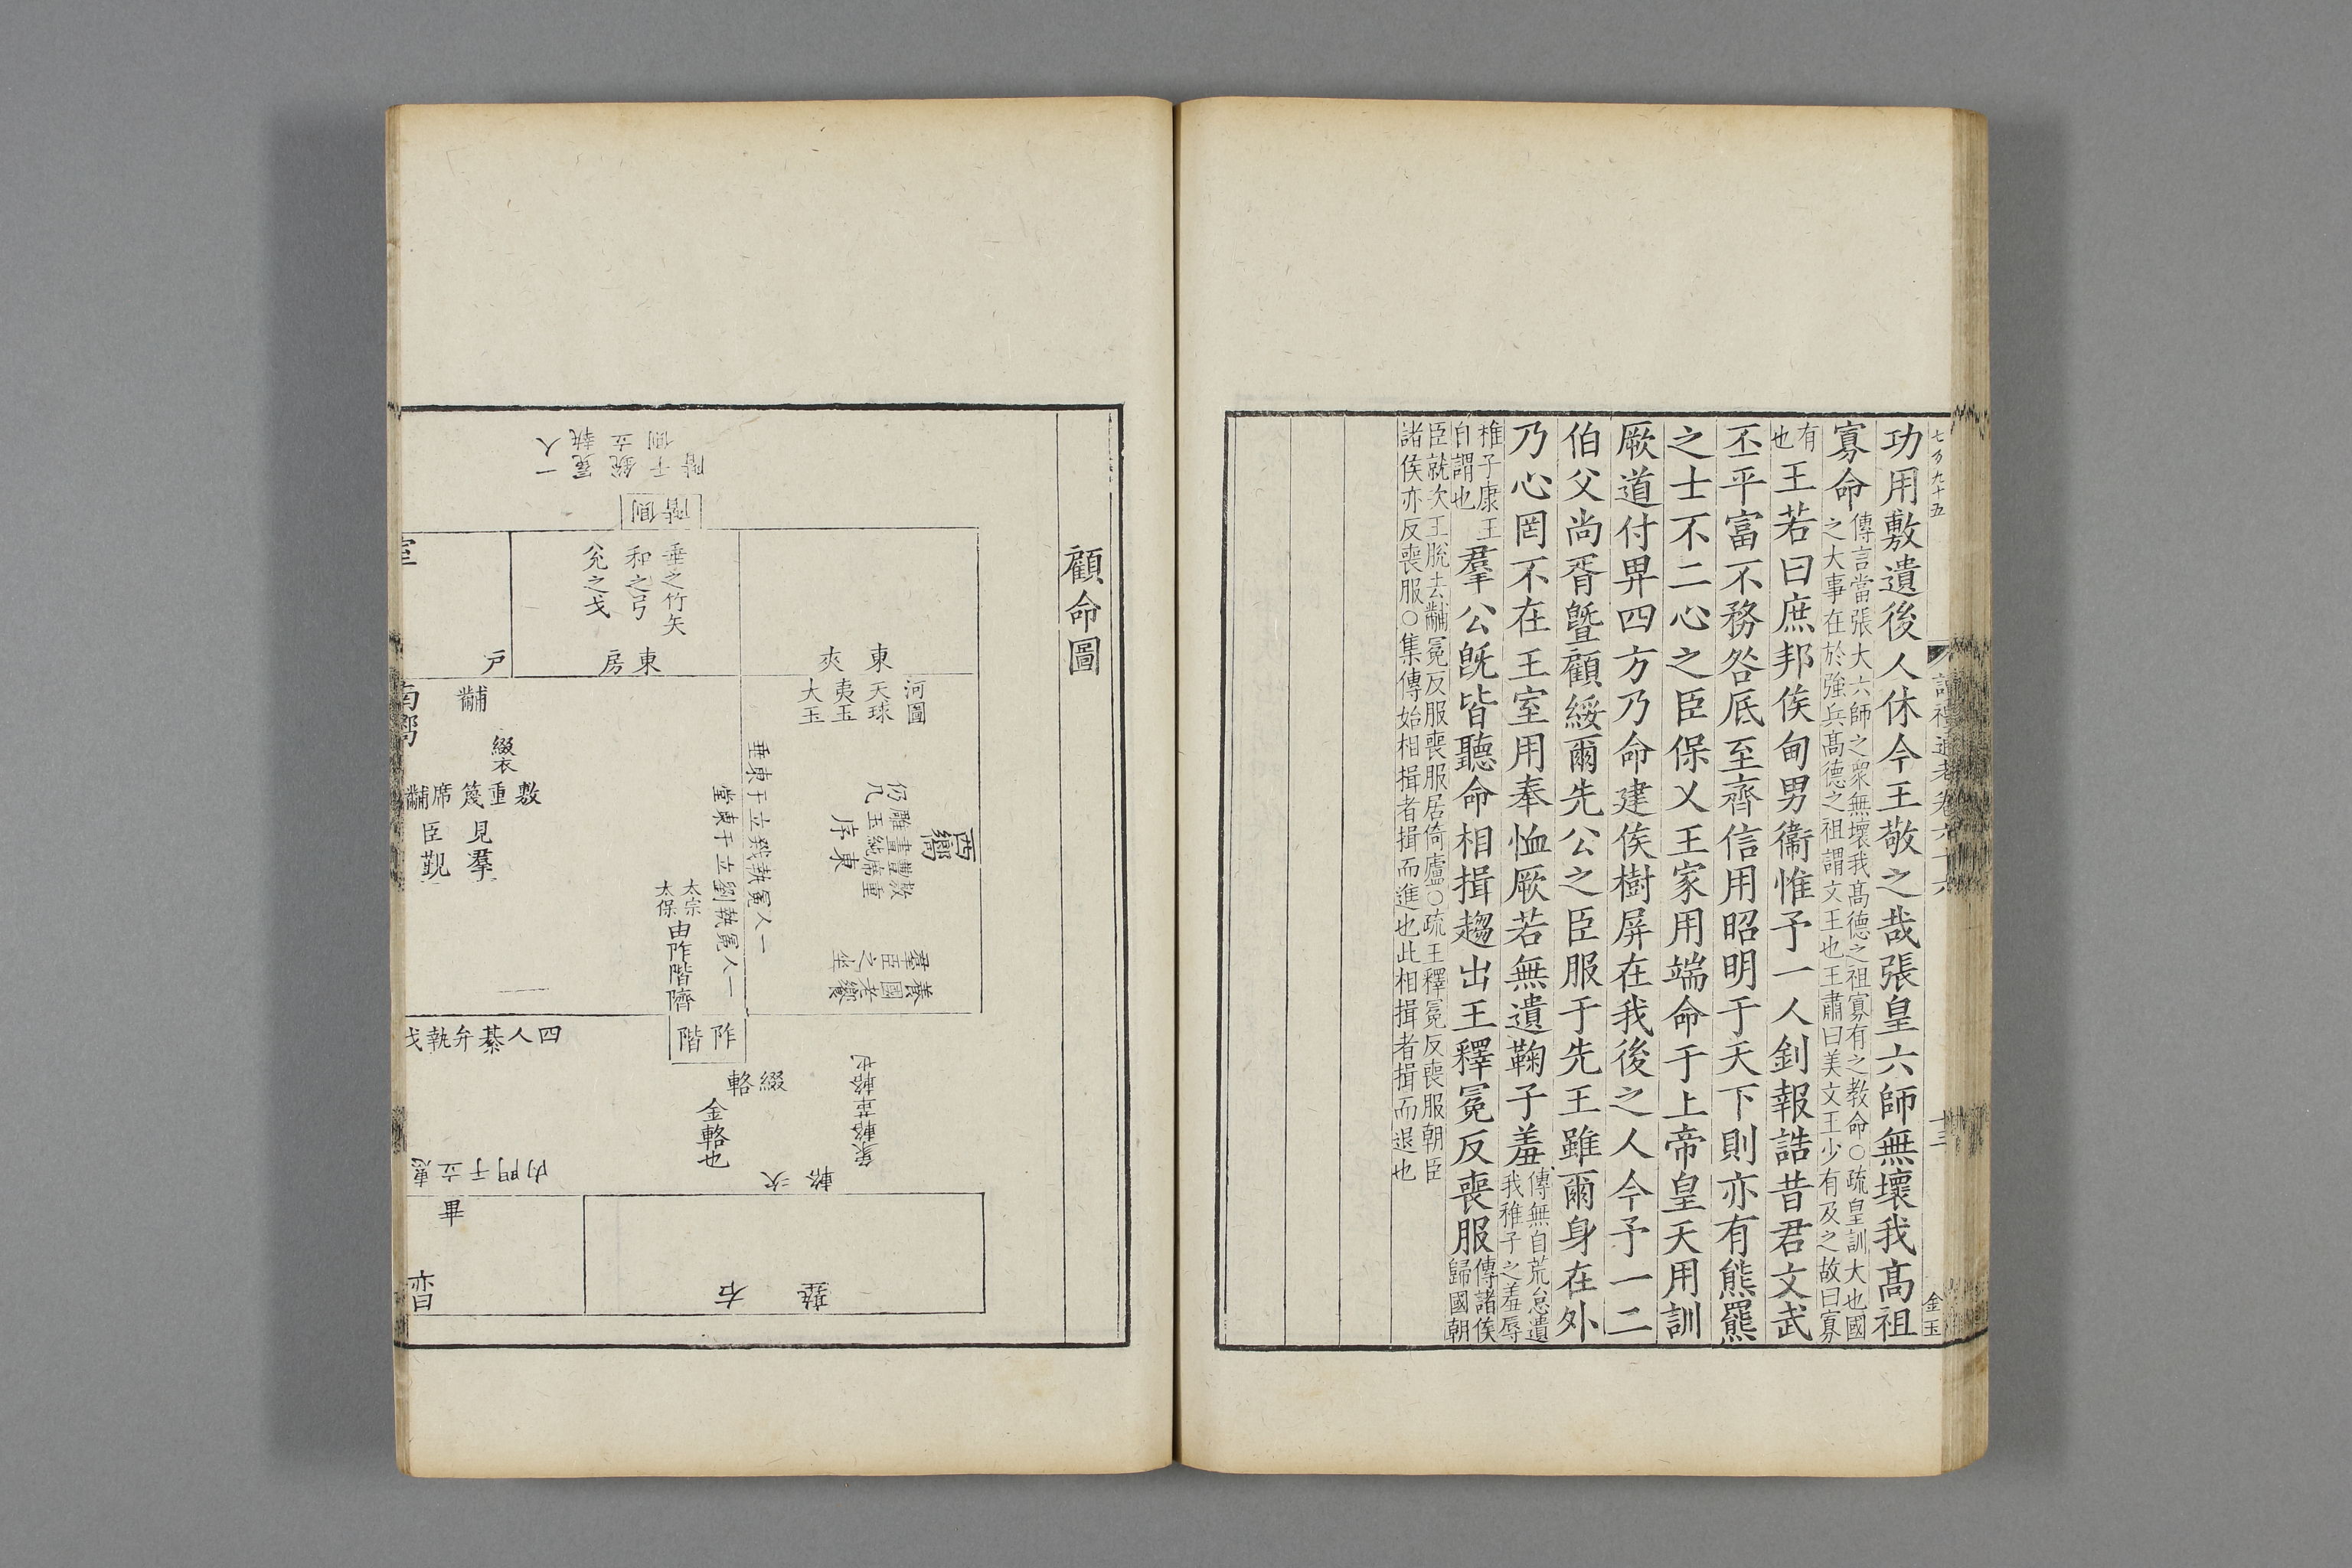 七万九十五
功用敷遺後人休今王敬之哉張皇六師無壞我髙祖
寡命傳言當張大六師之衆無壞我髙德之祖寡有之教命○疏皇訓大也國之大事在於強兵髙德之祖謂文王也王肅曰美文王少有及之故曰寡
有也王若曰庶邦侯甸男衞惟予一人釗報誥昔君文武
丕平富不務咎厎至齊信用昭明于天下則亦有熊羆
之士不二心之臣保乂王家用端命于上帝皇天用訓
厥道付畀四方乃命建侯樹屏在我後之人今予一二
伯父尚胥曁顧綏爾先公之臣服于先王雖爾身在外
乃心罔不在王室用奉恤厥若無遺鞠子羞傳無自荒怠遺我稚子之羞辱
稚子康王自謂也羣公旣皆聽命相揖趨出王釋冕反喪服傳諸侯歸國朝
臣就次王脫去黼冕反服喪服居倚廬○疏王釋冕反喪服朝臣
諸侯亦反喪服○集傳始相揖者揖而進也此相揖者揖而退也
十三
金玉
顧命圖
東夾
河圖
天球
夷玉
大玉
西嚮
敷重
豐席
畫純
雕玉
仍几
東序
養國老饗
羣臣之坐
一人冕執戣立于東垂
一人冕執劉立于東堂
東房
垂之竹矢
和之弓
兊之戈
側階
一人冕執銳立于側階
戶
室
黼
綴衣
南嚮
敷重篾席黼
見羣
臣覲
太宗
太保
由阼階隮
阼階
四人綦弁執戈
綴輅
金輅也
次輅
象輅革輅也
右塾
畢